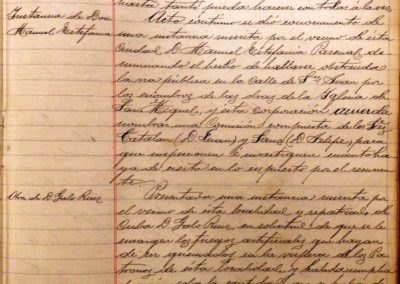 Instancia de Don
Manuel Estefanía
Acto continuo se dió conocimiento de
una instancia suscrita por el vecino de esta
Ciudad D. Manuel Estefanía Pascual, de
nunciando el hecho de hallarse obstruida
la via pública en la Calle de San Juan por
los escombros de las obras de la Iglesia de
San Miguel, y esta Corporación acuerda
nombrar una Comisión compuesta de los Srs
Catalan (D. Juan) y (D. Felipe) para
que inspeccionen é investiguen cuanto ha
ya de cierto en lo expuesto por el recurren
te.
Otra de D. Galo Ruiz
Presentada una instancia suscrita por
el vecino de esta localidad y repatriado de
Cuba D. Galo Ruiz, en solicitud de que se le
encarguen los fuegos artificiales que hayan
de ser quemados en la víspera de los Pa
tronos de esta localidad, y habida cumplida